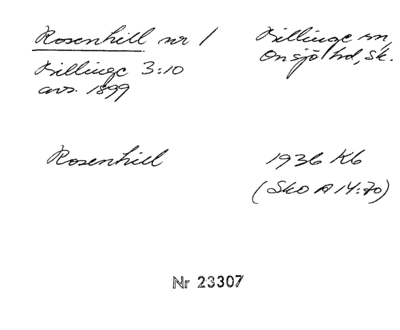 Rosenhill nr 1
Billinge sn,
Onsjö hd, Sk.
Billinge 3:10
avs. 1899
Rosenhill
1936 Kb
(Sko A 14:70)
Nr 23307